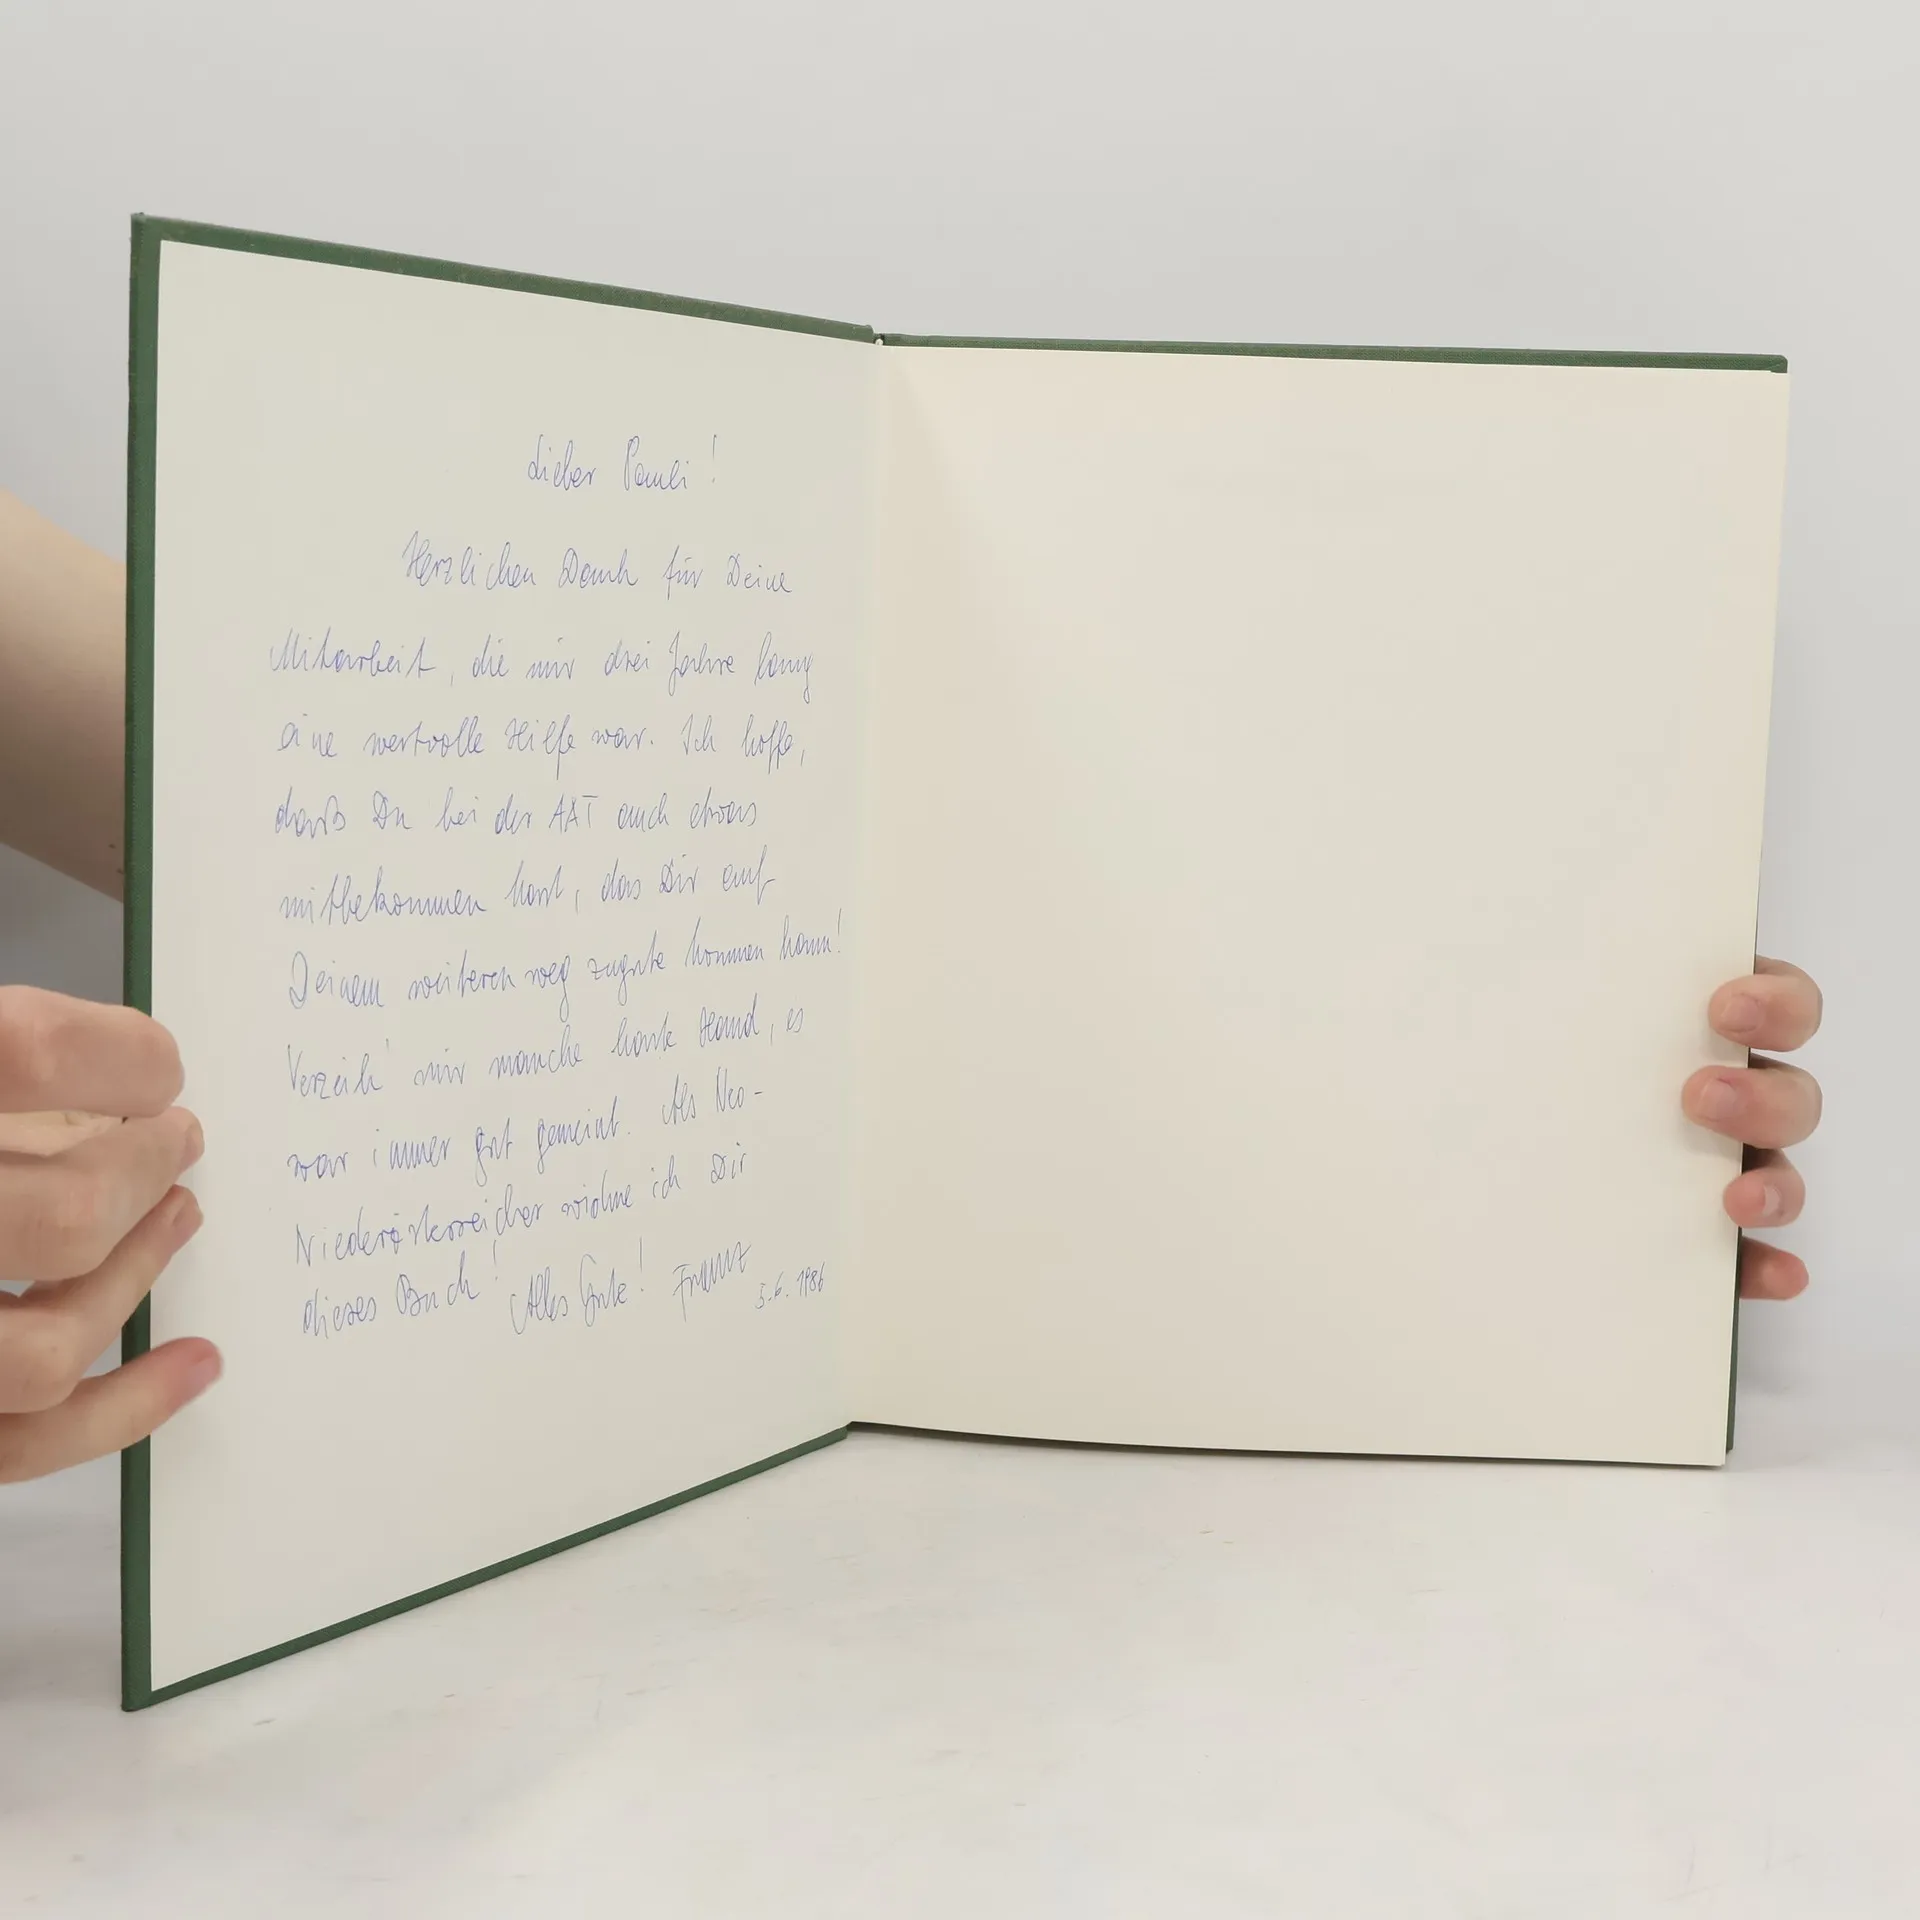 Lieber Pauli!
Herzlichen Dank für Deine
Mitarbeit, die mir drei Jahre lang
eine wertvolle Hilfe war. Ich hoffe,
daß Du bei der AAT auch etwas
mitbekommen hast, das Dir auf
Deinem weiteren Weg zugute kommen kann!
Verzeih' mir manche harte Hand, es
war immer gut gemeint. Als Neo-
Niederösterreicher widme ich Dir
dieses Buch! Alles Gute! Franz
5.6.1986